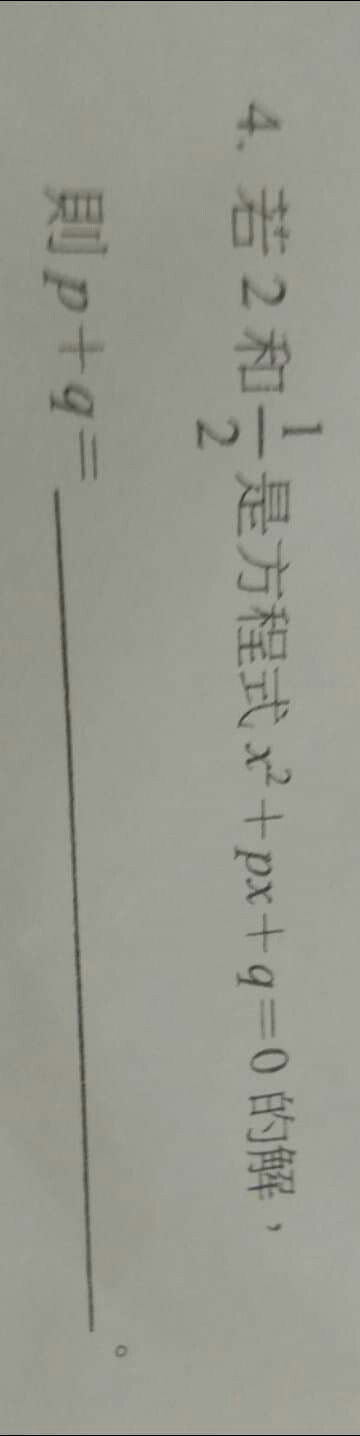 4. 若 2 和 1/2 是方程式 x² + px + q = 0 的解，
則 p + q = ________。